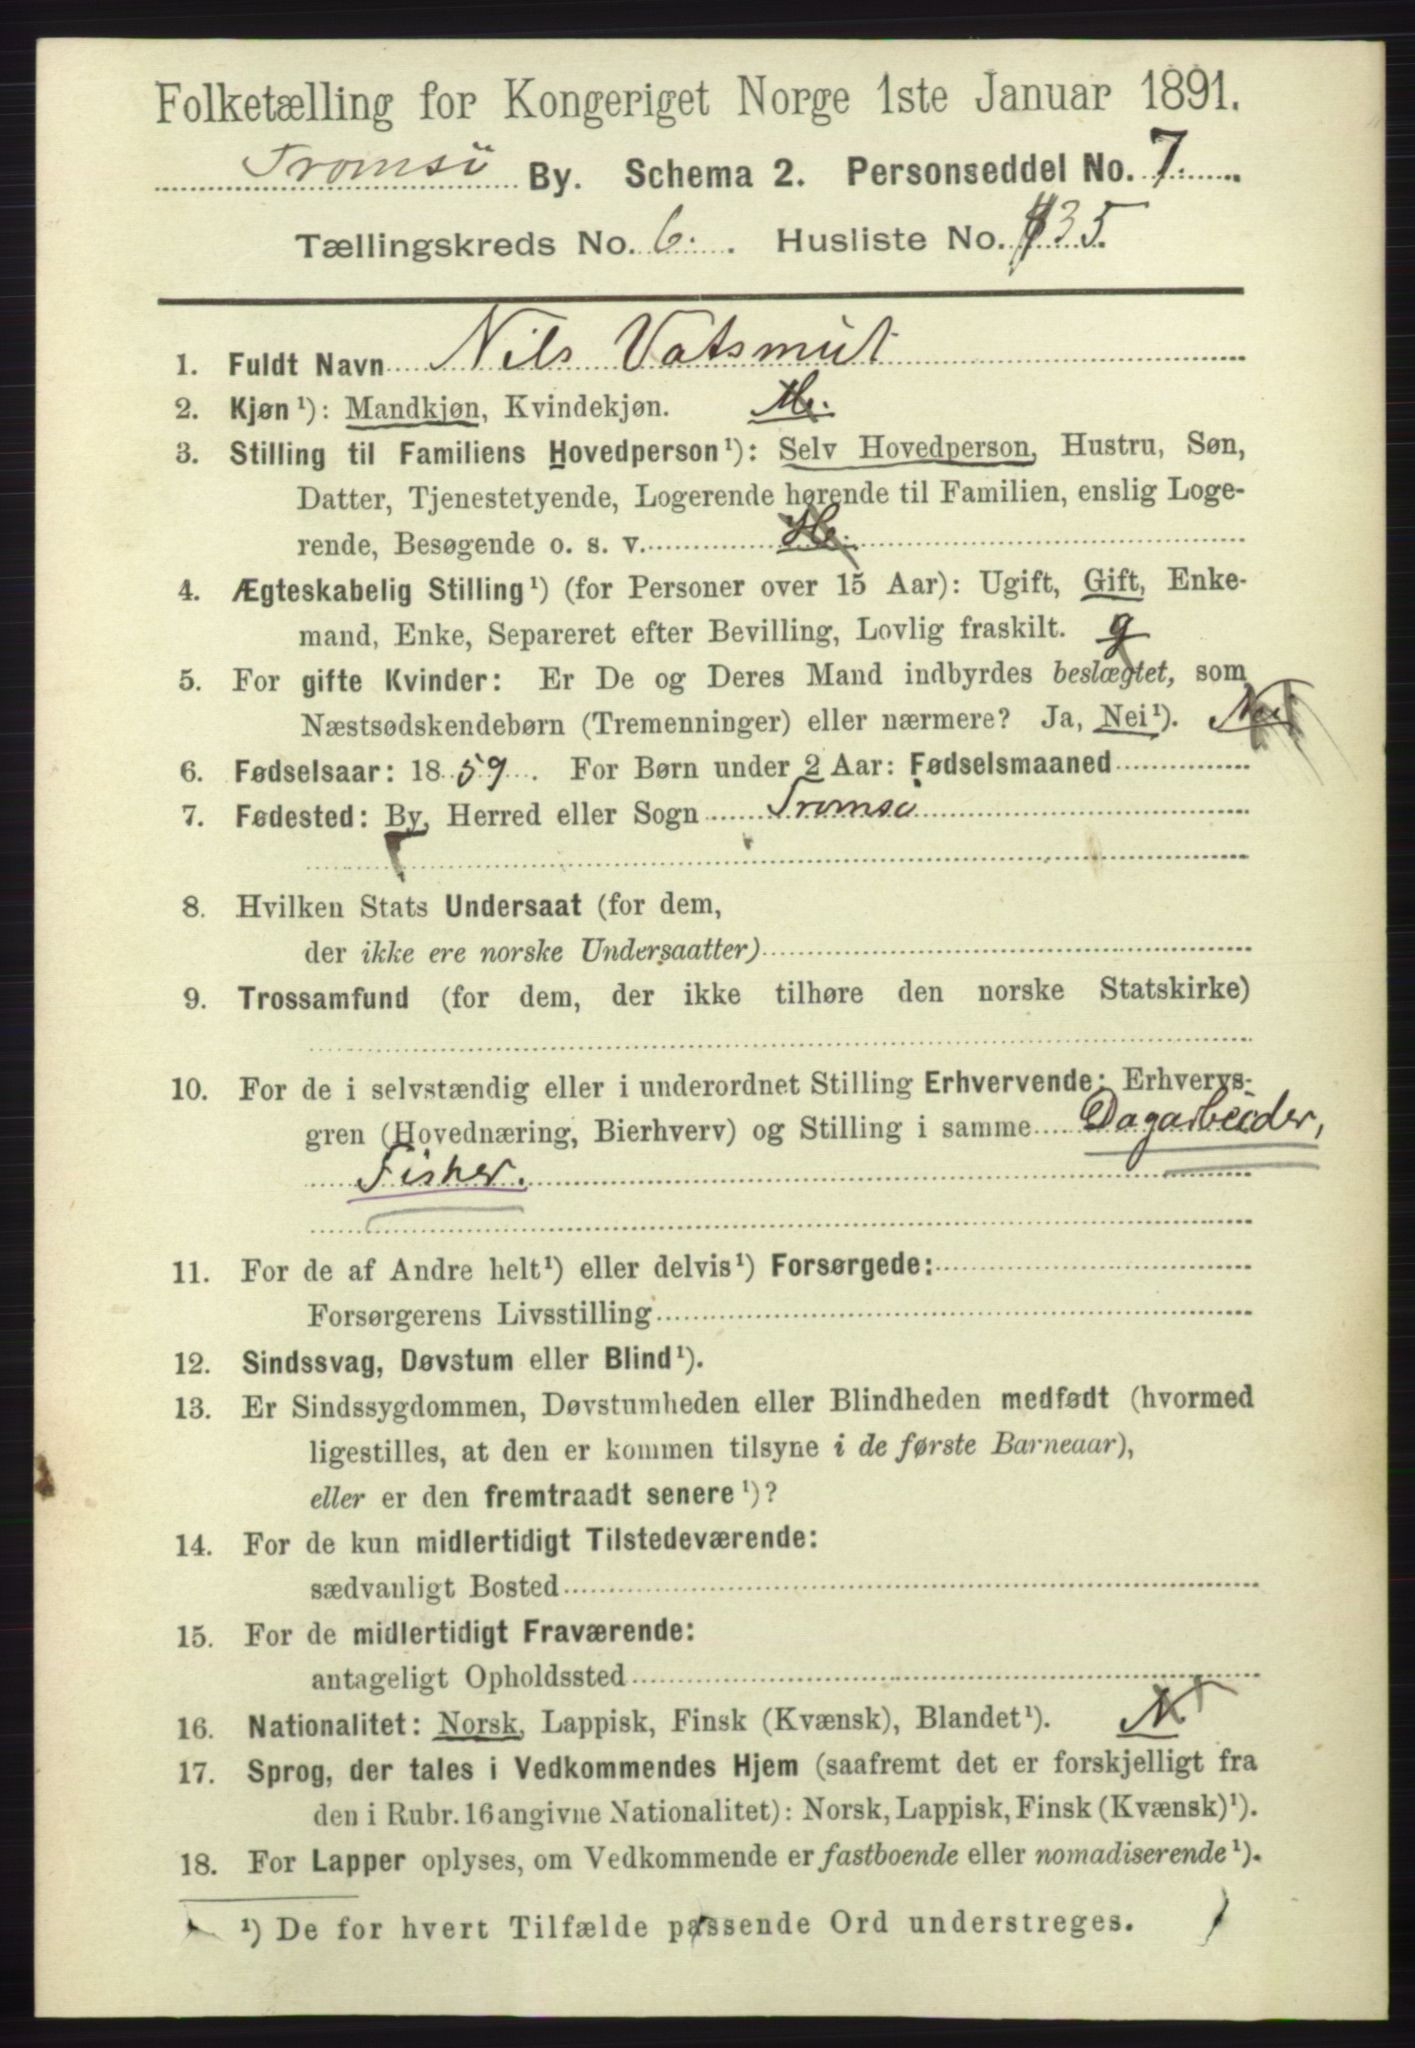 Folketælling for Kongeriget Norge 1ste Januar 1891.
Tromsö By. Schema 2. Personseddel No. 7.
Tællingskreds No. 6. Husliste No. 135.
1. Fuldt Navn Nils Vatsmut
2. Kjøn¹): Mandkjøn, Kvindekjøn. M.
3. Stilling til Familiens Hovedperson¹): Selv Hovedperson, Hustru, Søn,
Datter, Tjenestetyende, Logerende hørende til Familien, enslig Loge-
rende, Besøgende o. s. v.
4. Ægteskabelig Stilling¹) (for Personer over 15 Aar): Ugift, Gift, Enke-
mand, Enke, Separeret efter Bevilling, Lovlig fraskilt. g
5. For gifte Kvinder: Er De og Deres Mand indbyrdes beslægtet, som
Næstsødskendebørn (Tremenninger) eller nærmere? Ja, Nei¹). Nei
6. Fødselsaar: 1859. For Børn under 2 Aar: Fødselsmaaned
7. Fødested: By, Herred eller Sogn Tromsö
8. Hvilken Stats Undersaat (for dem,
der ikke ere norske Undersaatter)
9. Trossamfund (for dem, der ikke tilhøre den norske Statskirke)
10. For de i selvstændig eller i underordnet Stilling Erhvervende: Erhvervs-
gren (Hovednæring, Bierhverv) og Stilling i samme Dagarbeider,
Fisker.
11. For de af Andre helt¹) eller delvis¹) Forsørgede:
Forsørgerens Livsstilling
12. Sindssvag, Døvstum eller Blind¹).
13. Er Sindssygdommen, Døvstumheden eller Blindheden medfødt (hvormed
ligestilles, at den er kommen tilsyne i de første Barneaar),
eller er den fremtraadt senere¹)?
14. For de kun midlertidigt Tilstedeværende:
sædvanligt Bosted
15. For de midlertidigt Fraværende:
antageligt Opholdssted
16. Nationalitet: Norsk, Lappisk, Finsk (Kvænsk), Blandet¹). N
17. Sprog, der tales i Vedkommendes Hjem (saafremt det er forskjelligt fra
den i Rubr. 16 angivne Nationalitet): Norsk, Lappisk, Finsk (Kvænsk)¹).
18. For Lapper oplyses, om Vedkommende er fastboende eller nomadiserende¹).
¹) De for hvert Tilfælde passende Ord understreges.